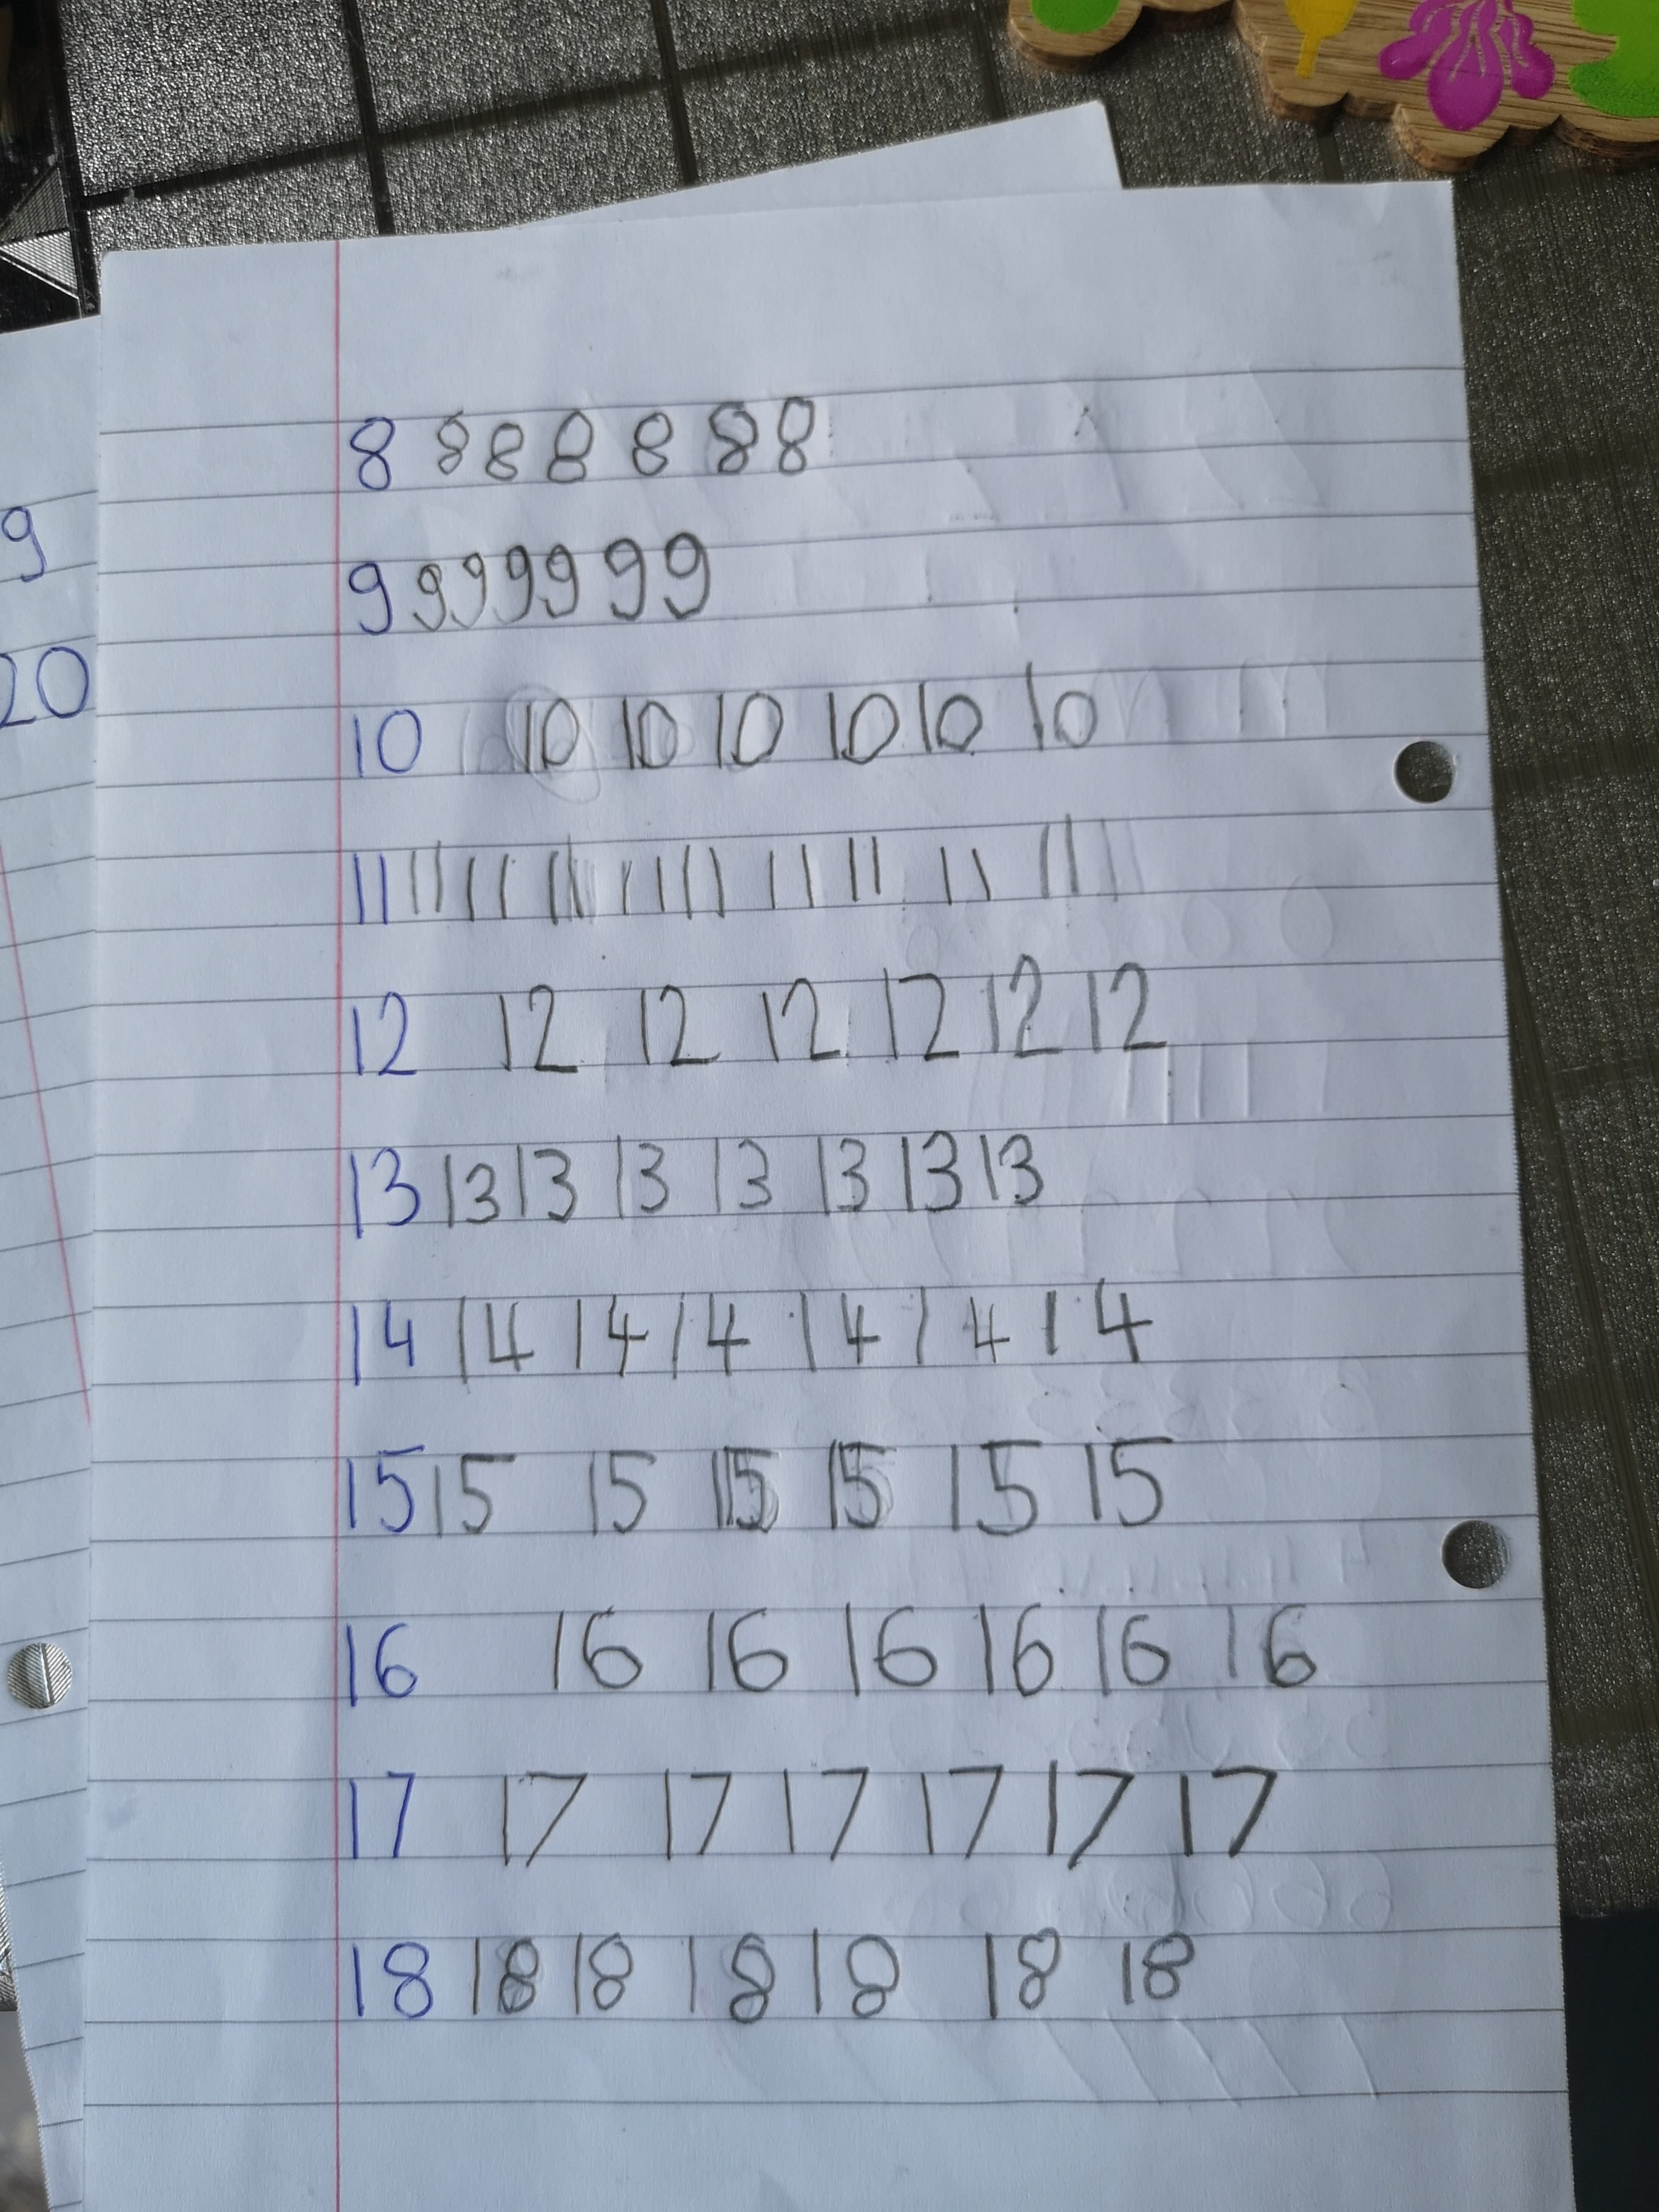 9
20
8 8 8 8 8 8 8
9 9 9 9 9 9 9
10 10 10 10 10 10 10
11 11 11 11 11 11 11 11 11
12 12 12 12 12 12 12
13 13 13 13 13 13 13 13
14 14 14 14 14 14 14
15 15 15 15 15 15 15
16 16 16 16 16 16 16
17 17 17 17 17 17 17
18 18 18 18 18 18 18